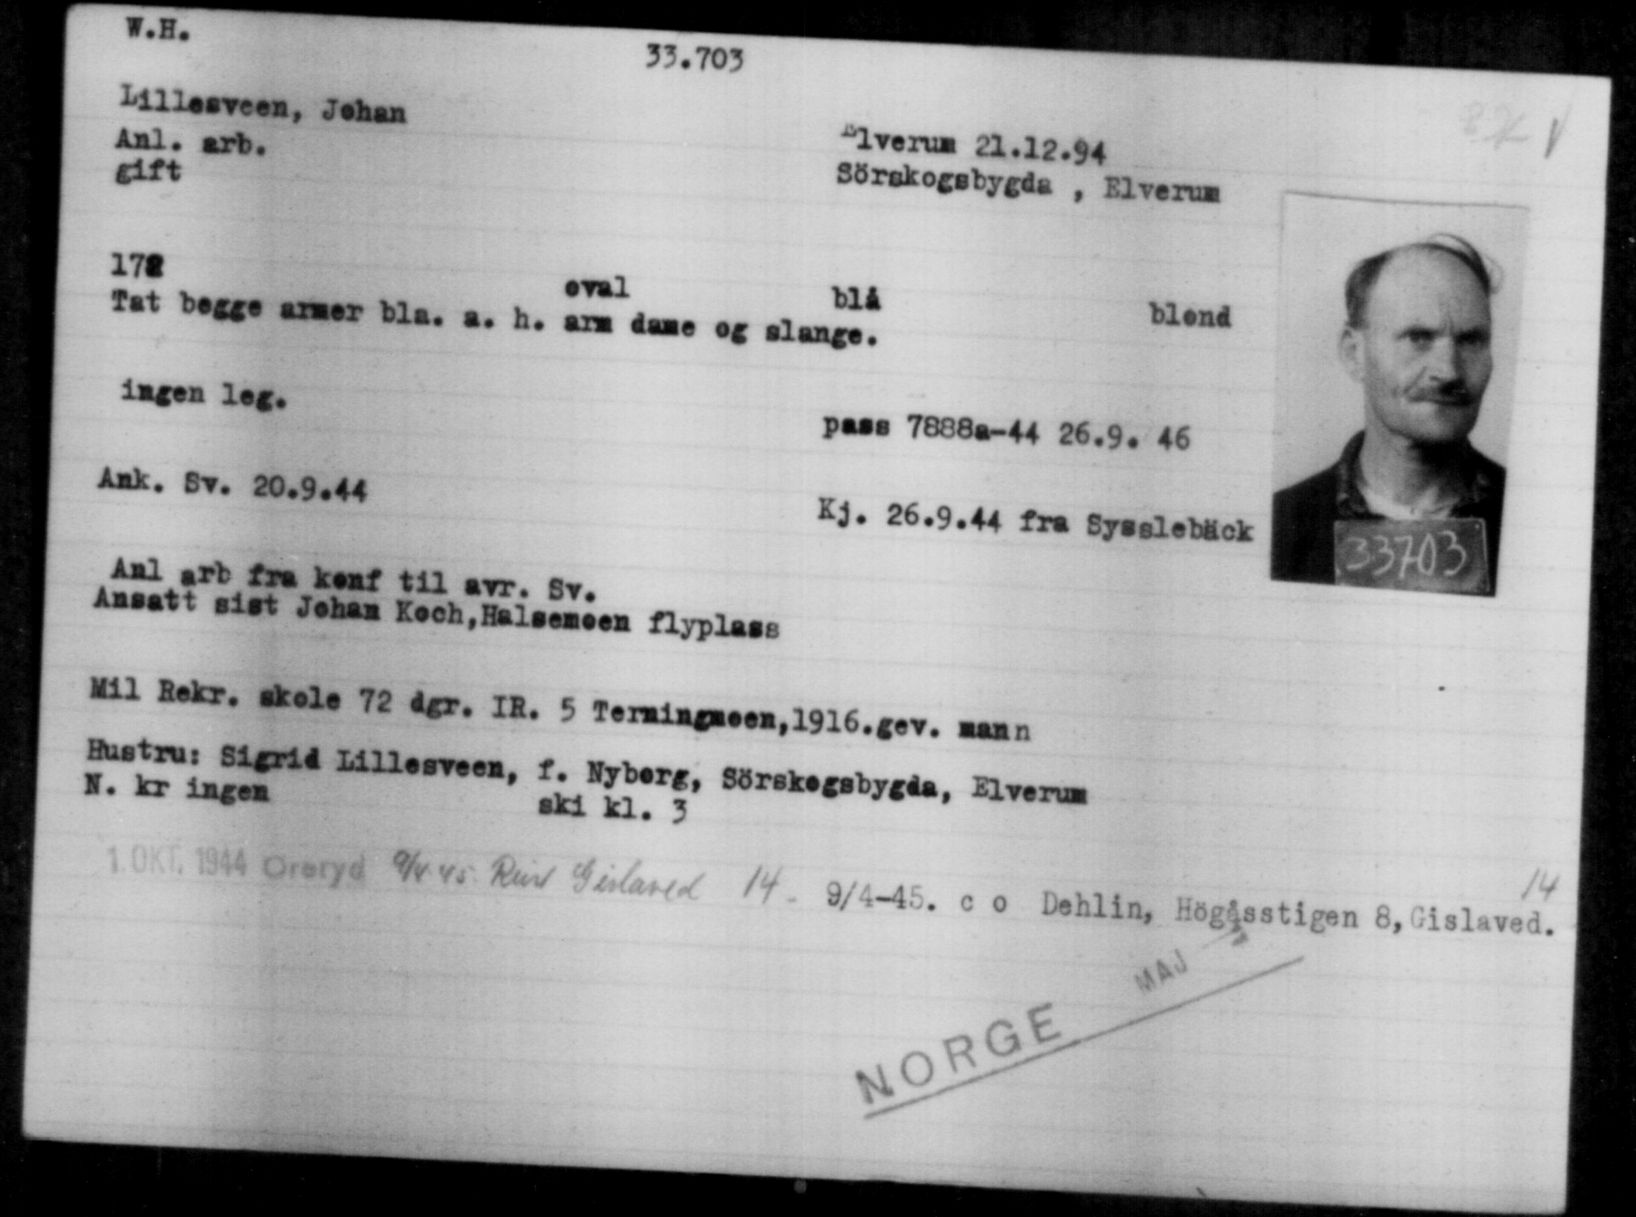 W.H.
33.703
Lillesveen, Johan
Anl. arb.
gift
Elverum 21.12.94
Sörskogsbygda , Elverum
172
oval blå blond
Tat begge armer bla. a. h. arm dame og slange.
ingen leg.
pass 7888a-44 26.9. 46
Ank. Sv. 20.9.44
Kj. 26.9.44 fra Sysslebäck
33703
Anl arb fra konf til avr. Sv.
Ansatt sist Johan Koch,Halsemoen flyplass
Mil Rekr. skole 72 dgr. IR. 5 Terningmoen,1916.gev. mann
Hustru: Sigrid Lillesveen, f. Nyberg, Sörskogsbygda, Elverum
N. kr ingen ski kl. 3
14
1. OKT. 1944 Öreryd 9/4 45. Gislaved 14 - 9/4-45. c o Dehlin, Högåsstigen 8,Gislaved.
NORGE MAJ